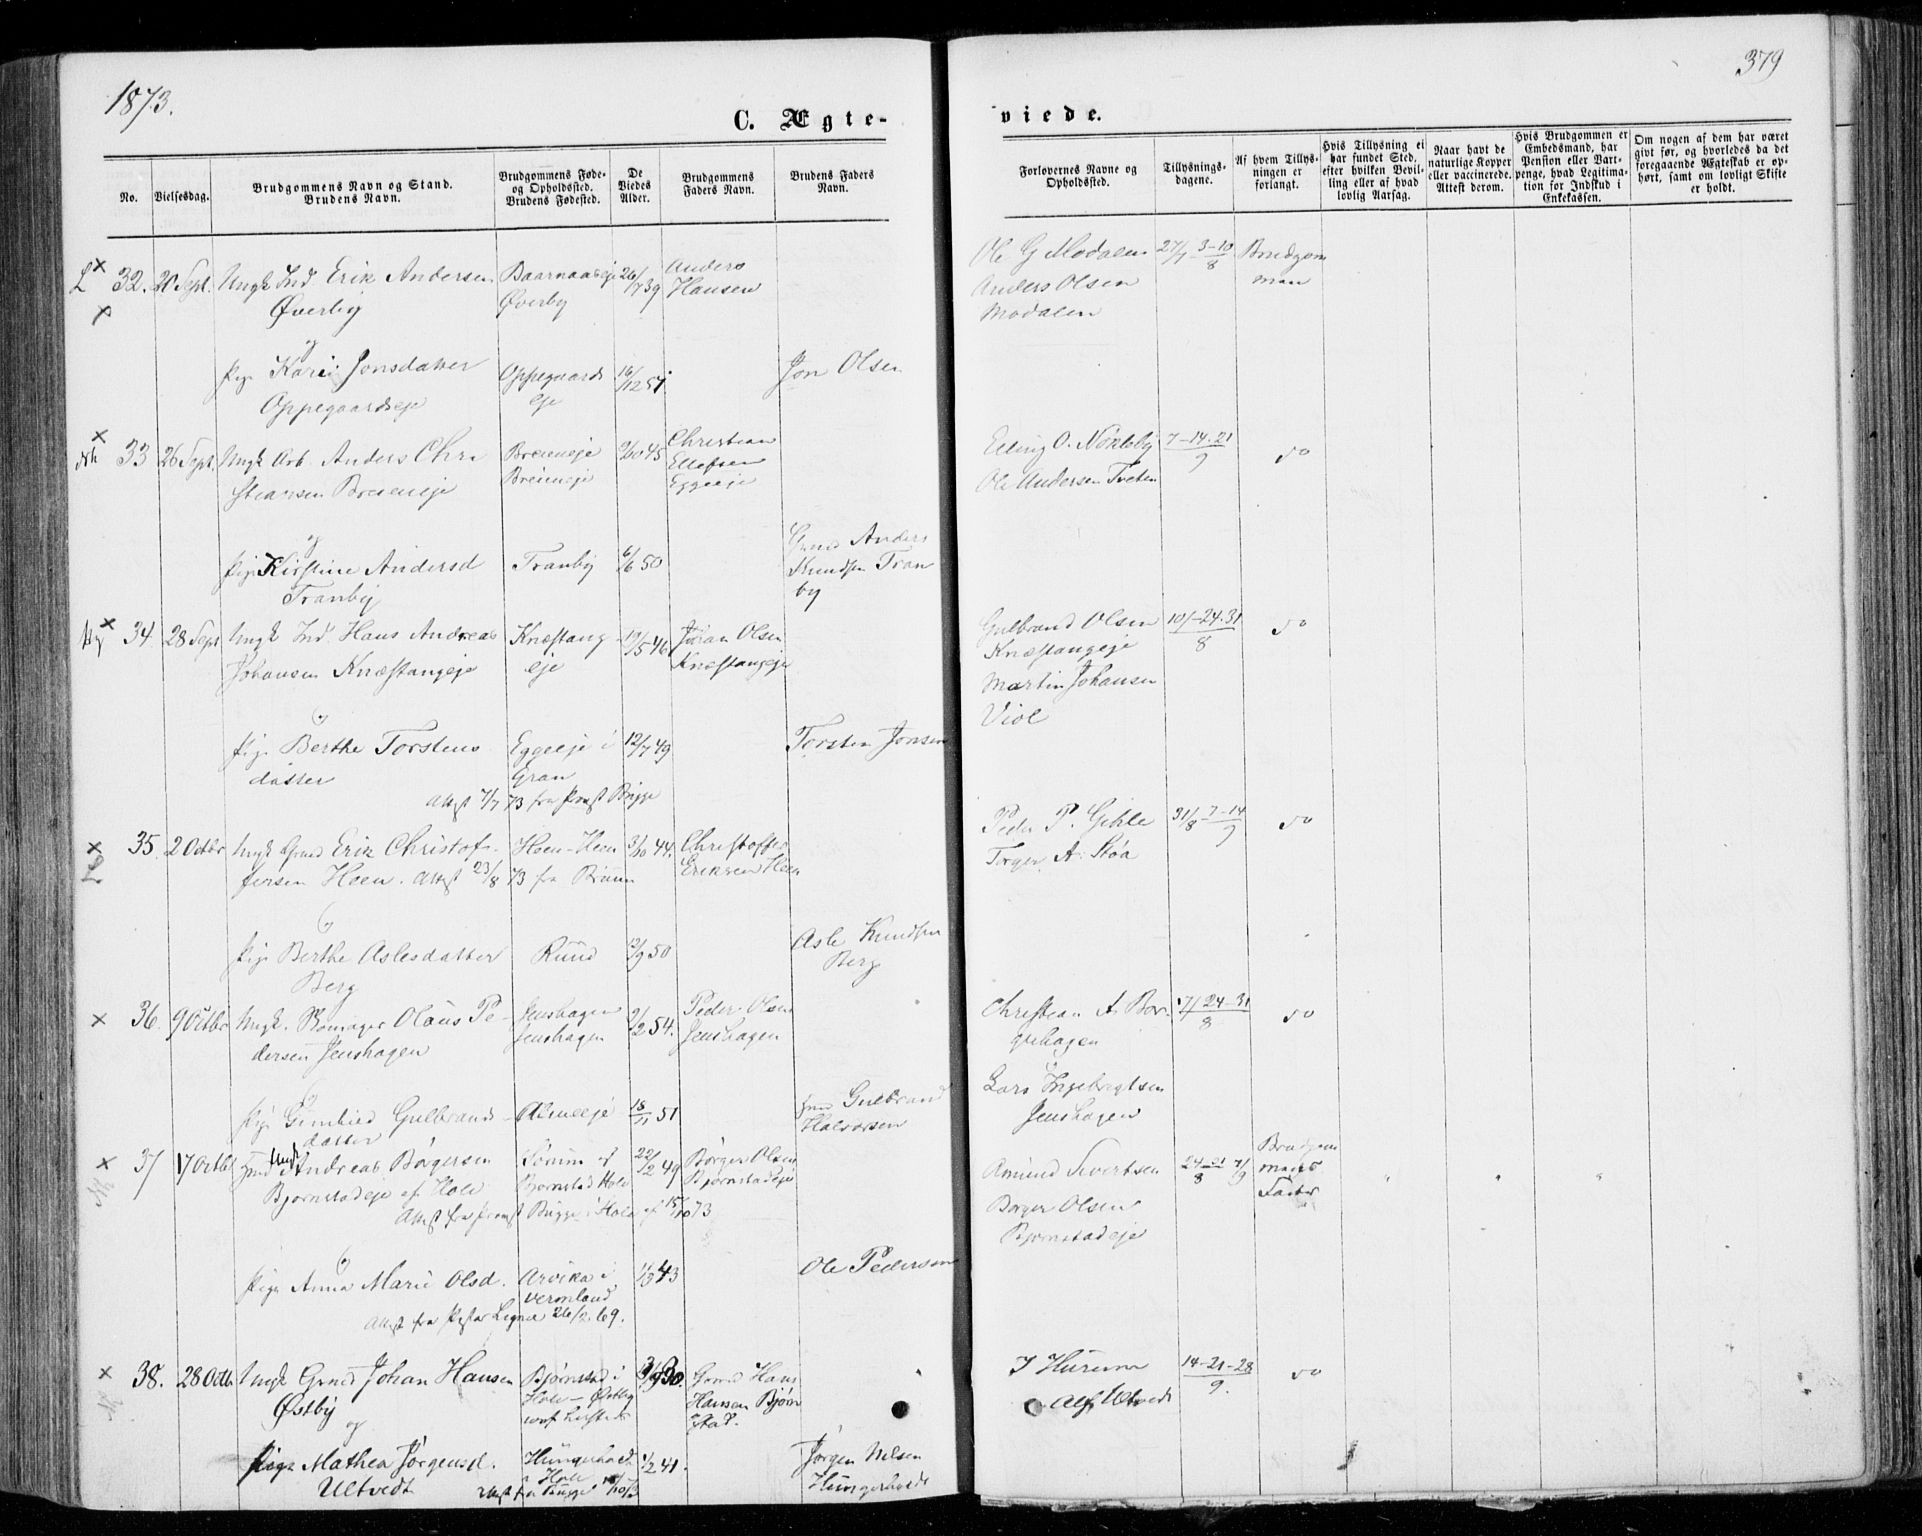 1873.
379
C. Ægte-
viede.
No.
Vielsesdag.
Brudgommens Navn og Stand.
Brudens Navn.
Brudgommens Føde-
og Opholdssted.
Brudens Fødested.
De
Viedes
Alder.
Brudgommens
Faders Navn.
Brudens Faders
Navn.
Forlovernes Navne og
Opholdssted.
Tillysnings-
dagene.
Af hvem Tillys-
ningen er
forlangt.
Hvis Tillysning ei
har fundet Sted,
efter hvilken Bevil-
ling eller af hvad
lovlig Aarsag.
Naar havt de
naturlige Kopper
eller vaccinerede.
Attest derom.
Hvis Brudgommen er
Embedsmand, har
Pension eller Vart-
penge, hvad Legitima-
tion for Indskud i
Enkekassen.
Om nogen af dem har været
givt før, og hvorledes da det
foregaaende Ægteskab er op-
hørt, samt om lovligt Skifte
er holdt.
32. 20 Sept. Ungk Ind. Erik Andersen
Øverby
Øverby
26/7 39
Anders
Hansen
Ole G Modalen
Anders Olsen
Modalen
27/7 3-10/8
Brudgom
man
og
Pige Kari Jonsdatter
Oppegaardseje
Oppegaards
eje
16/12 51
Jon Olsen
33 26 Sept. Ungk Arb. Anders Chri
stiansen Breieneje
Breieneje
Breieneje
9/10 45
Christian
Ellefsen
Eggeeje
Elling O. Nökleby
Ole Andersen Tveten
7-14-21/9
do
og
Pige Kirstine Andersd
Tranby
Tranby
6/6 50
Gmd Anders
Knudsen Tran
by
34 28 Sept Ungk Ind. Hans Andreas
Johansen Knæstangeje
Knæstang
eje
19/5 46
Johan Olsen
Knæstangeje
Gulbrand Olsen
Knæstangeje
Martin Johansen
Viol
10-24-31/8
do
og
Pige Berthe Torstens
datter
Eggeeje i
Gran
12/7 49
Torsten Jonsen
Attest 7/7 73 fra Præst Bugge
35. 2 Octbr Ungk Gmd Erik Christof-
fersen Hoen. Attest 23/8 73 fra
Hoen-Heen
3/10 44.
Christoffer
Eriksen Heen
Peder P. Gihle
Torger A. Støa
31/8 7-14/9
do
og
Pige Berthe Aslesdatter
Berg
Ruud
12/9 50
Asle Knudsen
Berg
36. 9 Octbr Ungk. Olaus Pe-
dersen Jenshagen
Jenshagen
Jenshagen
9/2 54.
Peder Olsen
Jenshagen
Christian A. Bor-
gehagen
Lars Ingebrigtsen
Jenshagen
17-24-31/8
do
og
Pige Gunbild Gulbrands
datter
Almeeje
18/11 51
Gmd Gulbrand
Halvorsen
37 17 Octbr Ungk Andreas Börgersen
Bjørnstadeje af Hole
Bjørnstad Hole
22/2 49
Börger Olsen
Bjørnstadeje
Attest fra Præst Bugge i Hole af 15/10 73
Amund Sivertsen
Børger Olsen
Bjørnstadeje
24-31/8 7/9
Brudgom
mens
Fader
" " "
og
Pige Anna Marie Olsd.
Arvika i
Vermland
1/3 43
Ole Pedersen
Attest fra Pastor 26/2 69.
38. 28 Octb Ungk Gmd Johan Hansen
Østby
Bjørnstad i
Hole - Østby
30.
Gmd Hans
Hansen Bjørn
stad.
14-21-28/9.
do
og
Pige Mathea Jørgensd.
Ultvedt
Hungerholt
i Hole
1/2 41.
Jørgen Nilsen
Hungerholt
Attest fra Bugge